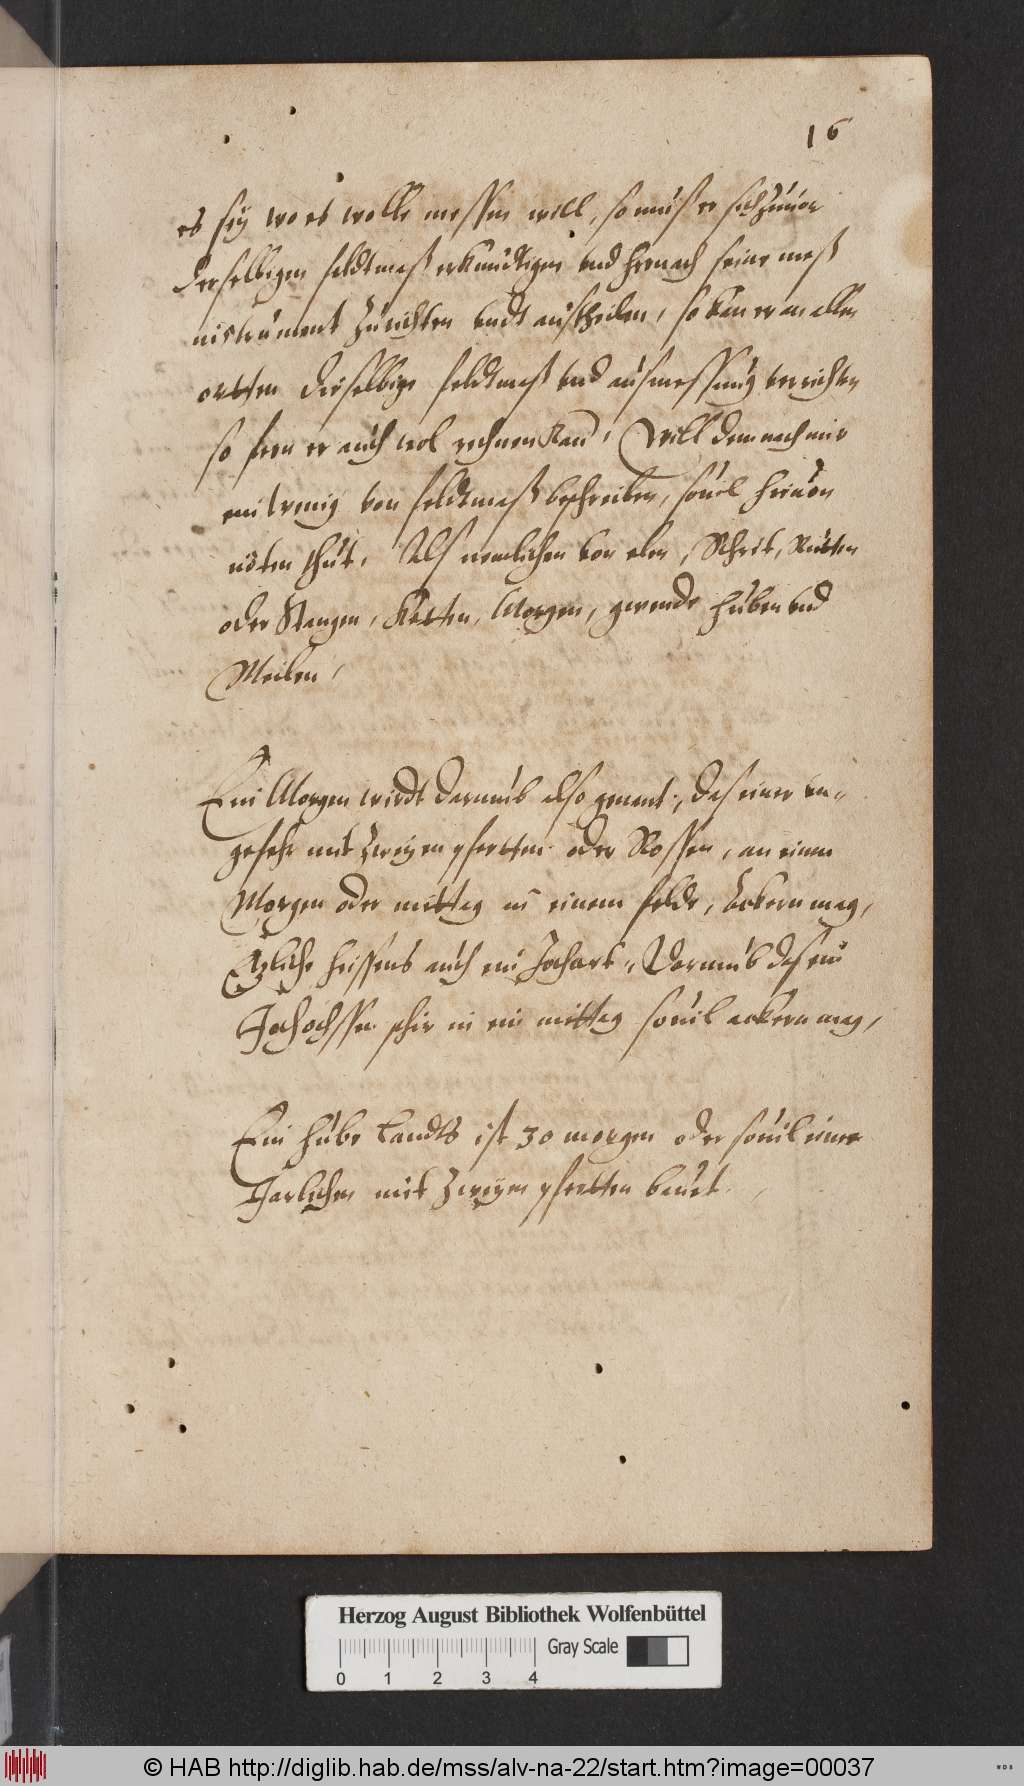 16
es seÿ wo es wolle messen will, so mus er sich zuuor
derselbigen feldtmaß erkundtigen vnd hernach seine maß
instrument zurichten vndt austheilen, so kan er an allen
ortten dieselbige feldtmaß vnd ausmessung verrichten
so fern er auch wol rechnen kan, Will demnach nur
ein wenig von feldtmaß beschreiben, souil hieuon
nöten thut, Als nemlichen von elen, Schrit, Rutten
oder Stangen, Ketten, Morgen, gewende huben vnd
Meilen,
Ein Morgen wirdt darumb also genent, das einer vn-
gefehr mit zweÿen pfertten oder Rossen, an einem
Morgen oder mittag in einem felde, ackern mag,
Etzliche heissens auch ein Jochart, Darumb das ein
Joch ochssen schir in ein mittag souil ackern mag,
Ein hube Landts ist 30 morgen oder souil einer
Jarlichen mit zweÿen pfertten bauet
Herzog August Bibliothek Wolfenbüttel
Gray Scale
0 1 2 3 4
© HAB http://diglib.hab.de/mss/alv-na-22/start.htm?image=00037